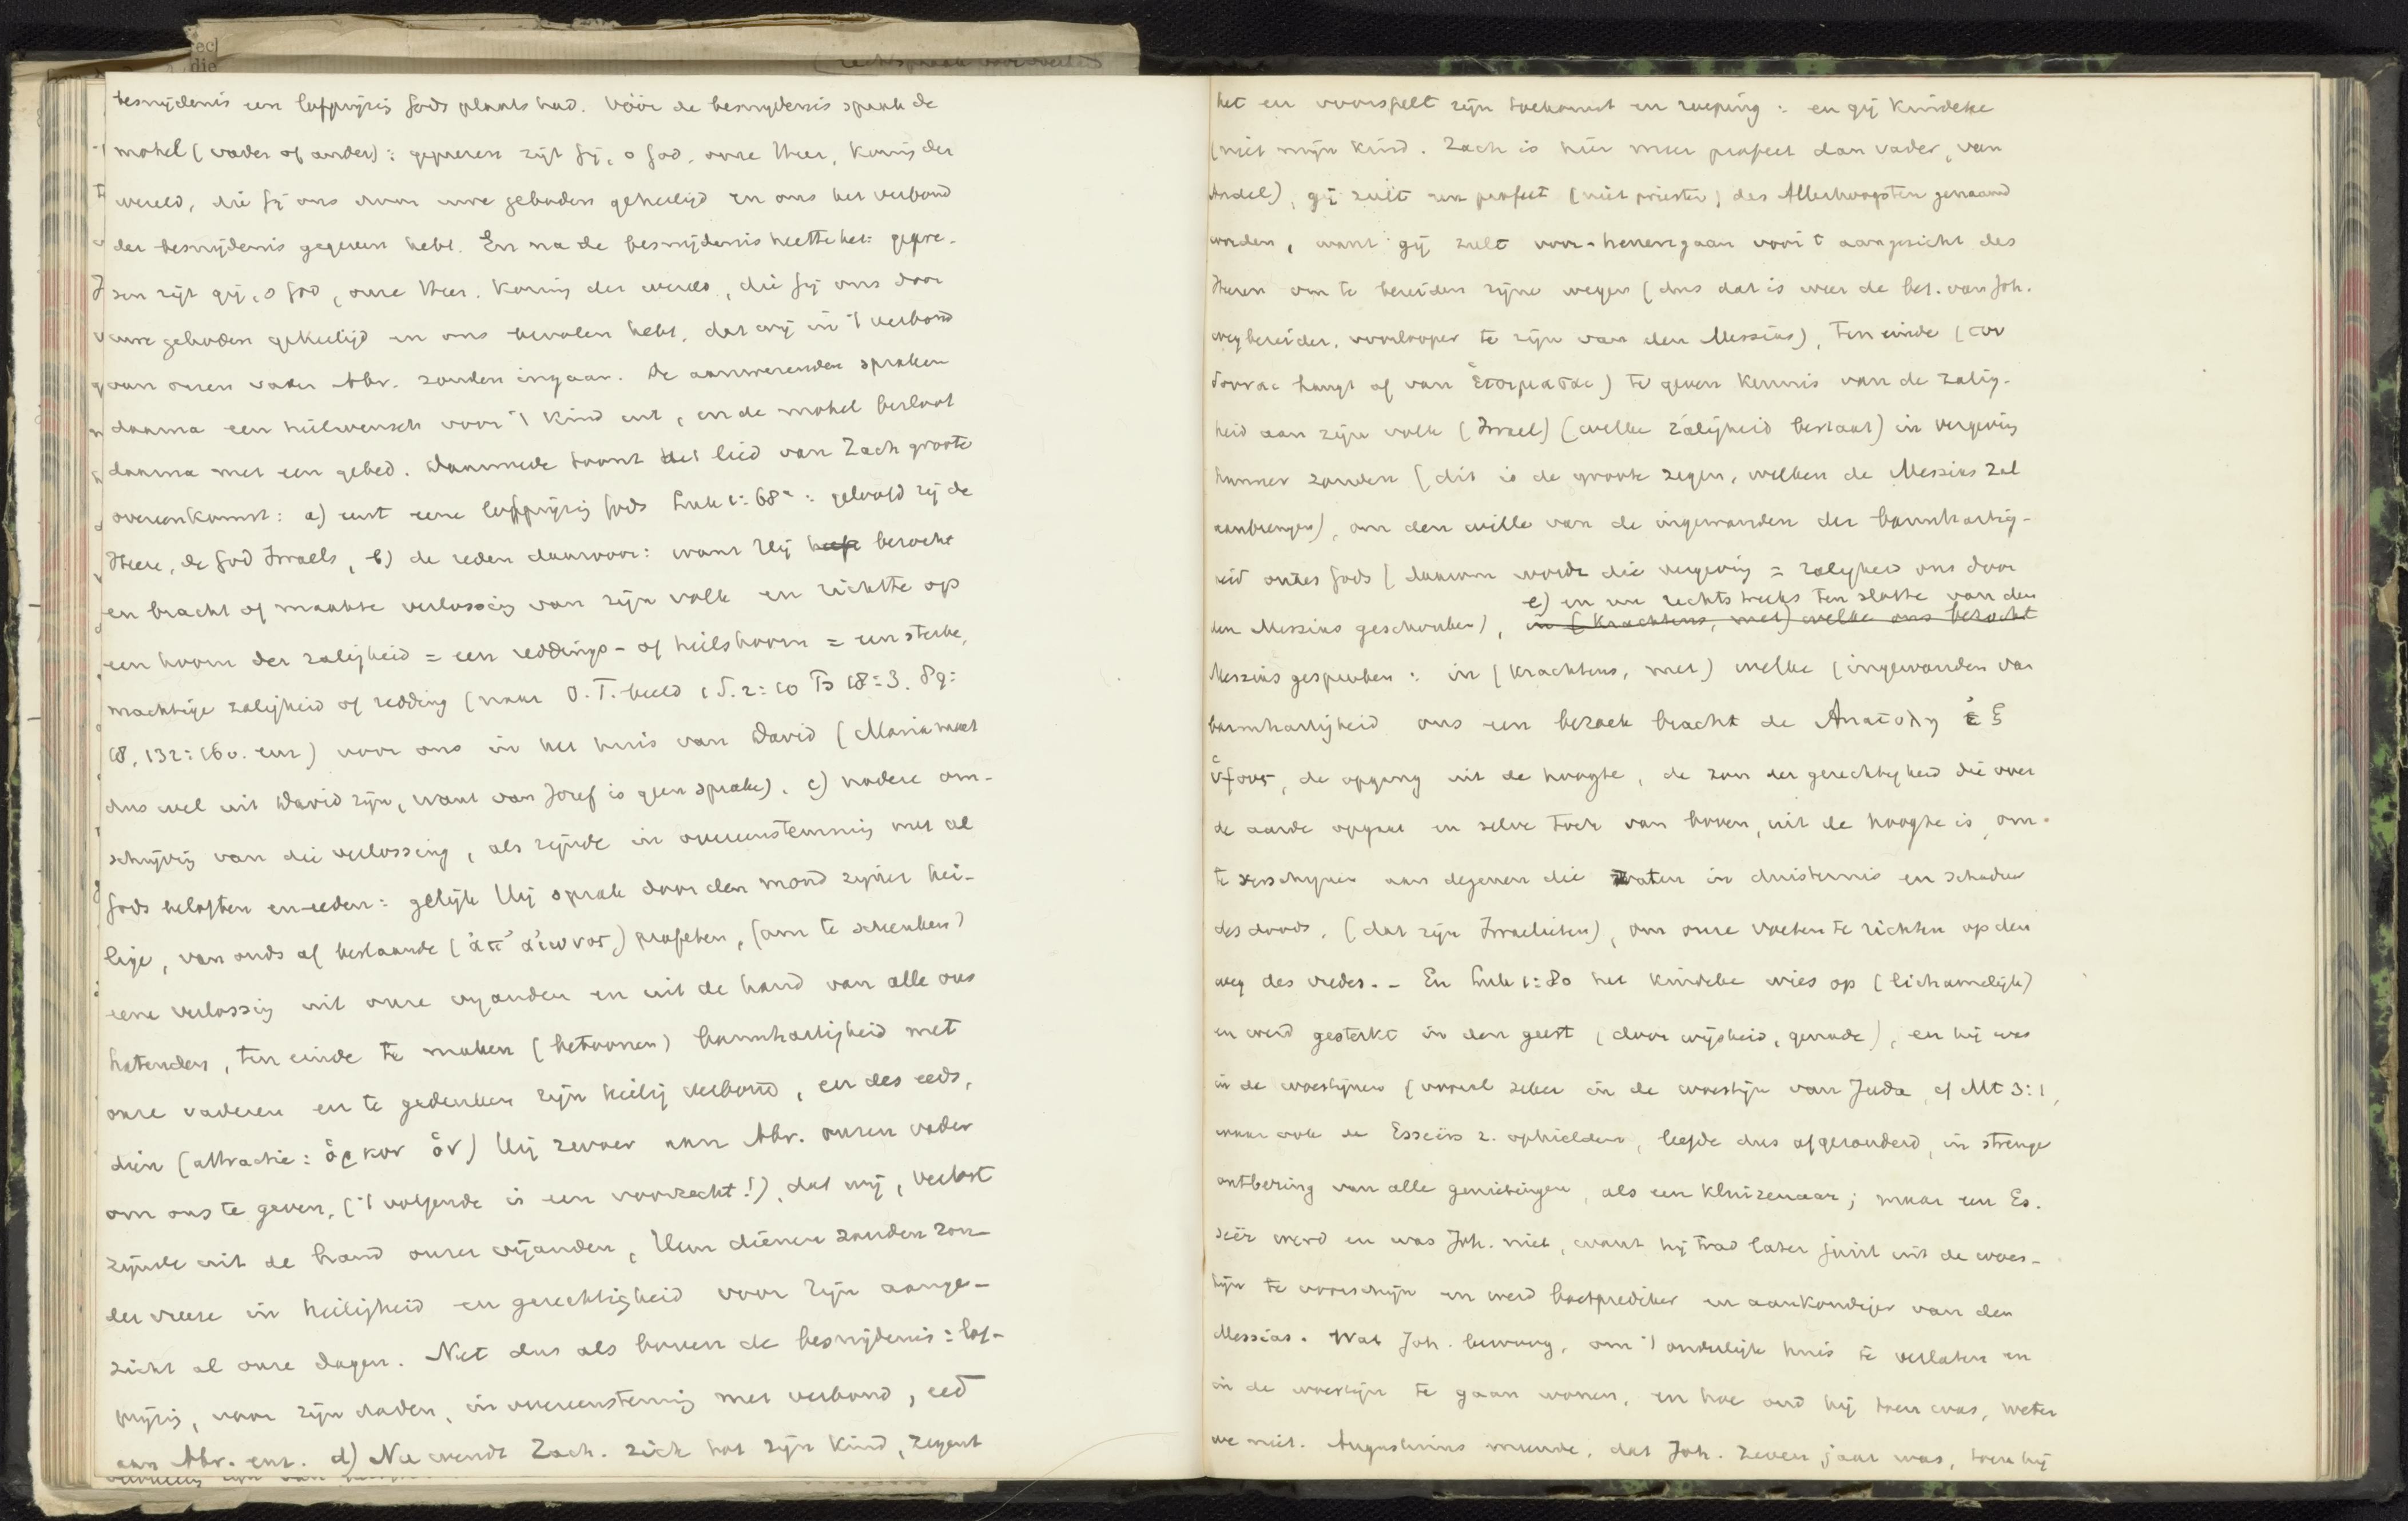 besnijdenis een lofprijzig Gods plaats had. Vóór de besnijdenis sprak de
mohel (vader of ander): geprezen zijt Gij, o God, onze Heer, Konig der
wereld, die Gij ons door uwe geboden geheiligd en ons het verbond
der besnijdenis gegeven hebt. En na de besnijdenis heette het: gepre-
zen zijt gij, o God, onze Heer. Koning der wereld, die Gij ons door
uwe geboden geheiligd en ons bevolen hebt, dat wij in 't verbond
van onzen vader Abr. zouden ingaan. De aanwezenden spraken
daarna een heilwensch voor 't Kind uit, en de mohel besloot
daarna met een gebed. Daarmede toont het lied van Zach groote
overeenkomst: a) eerst eene lofprijzig Gods Luk 1:68a: geloofd zij de
Heere, de God Israels, b) de reden daarvoor: want Hij heeft bezocht
en bracht of maakte verlossig van zijn volk en richtte op
een hoorn der zaligheid = een reddings- of heilshoorn = een sterke,
machtige zaligheid of redding (naar O.T. beeld 1 S. 2:10 Ps 18:3. 89:
18, 132:16v. enz) voor ons in het huis van David (Maria moet
dus wel uit David zijn, want van Jozef is geen sprake). c) nadere om-
schrijvig van die verlossing, als zijnde in overeenstemmig met al
Gods beloften en eeden: gelijk Hij sprak door den mond zijner hei-
lige, van ouds af bestaande (ἀπ' αἰωνος) profeten, (om te schenken)
eene verlossig uit onze vijanden en uit de hand van alle ons
hatenden, ten einde te maken (betoonen) barmhartigheid met
onze vaderen en te gedenken zijn heilig verbond, en des eeds,
dien (attractie: ὁρκον ὁν) Hij zwoer aan Abr. onzen vader
om ons te geven, ('t volgende is een voorrecht!), dat wij, verlost
zijnde uit de hand onzer vijanden, Hem dienen zouden zon-
der vreeze in heiligheid en gerechtigheid voor Zijn aange-
zicht al onze dagen. Net dus als boven de besnijdenis: lof-
prijzig, voor zijn daden, in overeenstemmig met verbond, eed
aan Abr. enz. d) Nu wendt Zach. zich tot zijn Kind, zegent
het en voorspelt zijn toekomst en roeping: en gij Kindeke
(niet mijn Kind. Zach is hier meer profeet dan vader, van
Andel), gij zult een profeet (niet priester) des Allerhoogsten genaamd
worden, want gij zult voor-henengaan voor 't aangezicht des
Heren om te bereiden zijne wegen (dus dat is weer de bet. van Joh.
wegbereider, voorlooper te zijn van den Messias), ten einde (του
δουναι hangt af van ἑτοιμασαι) te geven Kennis van de zalig-
heid aan zijn volk (Israel) (welke zaligheid bestaat) in vergevig
hunner zonden (dit is de groote zegen, welken de Messias zal
aanbrengen), om den wille van de ingewanden der barmhartig-
heid onzes Gods (daarom wordt die vergevig = zaligheid ons door
den Messias geschonken), in (Krachtens, met) welke ons bezocht
e) en nu rechtstreeks ten slotte van den
Messias gesproken: in (Krachtens, met) welke (ingewanden van
barmhartigheid ons een bezoek bracht de Ανατολη ἐξ
ὑψους, de opgang uit de hoogte, de zon der gerechtigheid die over
de aarde opgaat en zelve toch van boven, uit de hoogte is, om
te verschijnen aan degenen die zaten in duisternis en schaduw
des doods, (dat zijn Israelieten), om onze voeten te richten op den
weg des vredes. - En Luk 1:80 het Kindeke wies op (lichamelijk)
en werd gesterkt in den geest (door wijsheid, genade), en hij was
in de woestijnen (vooral zeker in de woestijn van Juda, cf Mt 3:1,
waar ook de Esseërs z. ophielden, leefde dus afgezonderd, in strenge
ontbering van alle genietingen, als een Kluizenaar; maar een Es-
seër werd en was Joh. niet, want hij trad later juist uit de woes-
tijn te voorschijn en werd boetprediker en aankondiger van den
Messias. Wat Joh. bewoog, om 't ouderlijk huis te verlaten en
in de woestijn te gaan wonen, en hoe oud hij toen was, weten
we niet. Augustinus meende, dat Joh. zeven jaar was, toen hij